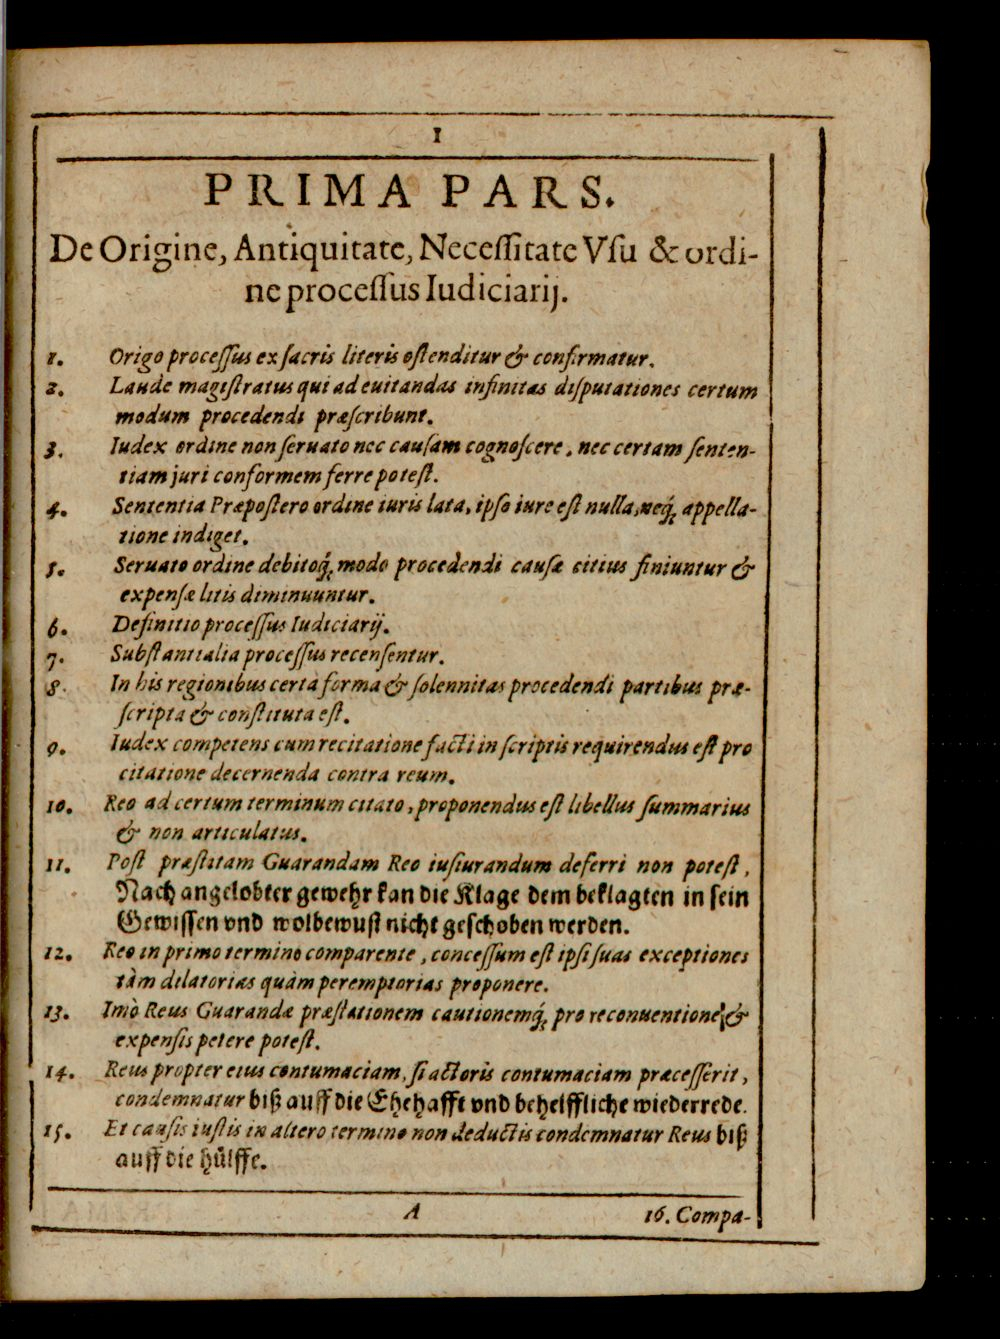 1
PRIMA PARS.
De Origine, Antiquitate, Necessitate Vsu & ordi-
ne processus Iudiciarij.
1. Origo processus ex sacris literis ostenditur & confirmatur.
2. Laudẽ magistratus qui ad euitandas infinitas disputationes certum
modum procedendi præscribunt.
3. Iudex ordine non seruato nec causam cognoscere, nec certam senten-
tiam juri conformem ferre potest.
4. Sententia Præpostero ordine iuris lata, ipso iure est nulla, neq́; appella-
tione indiget.
5. Seruato ordine debitoq́; modo procedendi causæ citius finiuntur &
expensæ litis diminuuntur.
6. Definitio processus Iudiciarij.
7. Substantialia processus recensentur.
8. In his regionibus certa forma & solennitas procedendi partibus præ-
scripta & constituta est.
9. Iudex competens cum recitatione facti in scriptis requirendus est pro
citatione decernenda contra reum.
10. Reo ad certum terminum citato, proponendus est libellus summarius
& non articulatus.
11. Post præstitam Guarandam Reo iusiurandum deferri non potest,
Nach angelobter gewehr kan die Klage dem beklagten in sein
Gewissen vnd wolbewust nicht geschoben werden.
12. Reo in primo termino comparente, concessum est ipsi suas exceptiones
tàm dilatorias quàm peremptorias proponere.
13. Imò Reus Guarandæ præstationem cautionemq́; pro reconuentione &
expensis petere potest.
14. Reus propter eius contumaciam, si actoris contumaciam præcesserit,
condemnatur biß auff die Ehehafft vnd behelffliche wiederrede.
15. Et causis iustis in altero termino non deductis condemnatur Reus biß
auff die hülffe.
A 16. Compa-